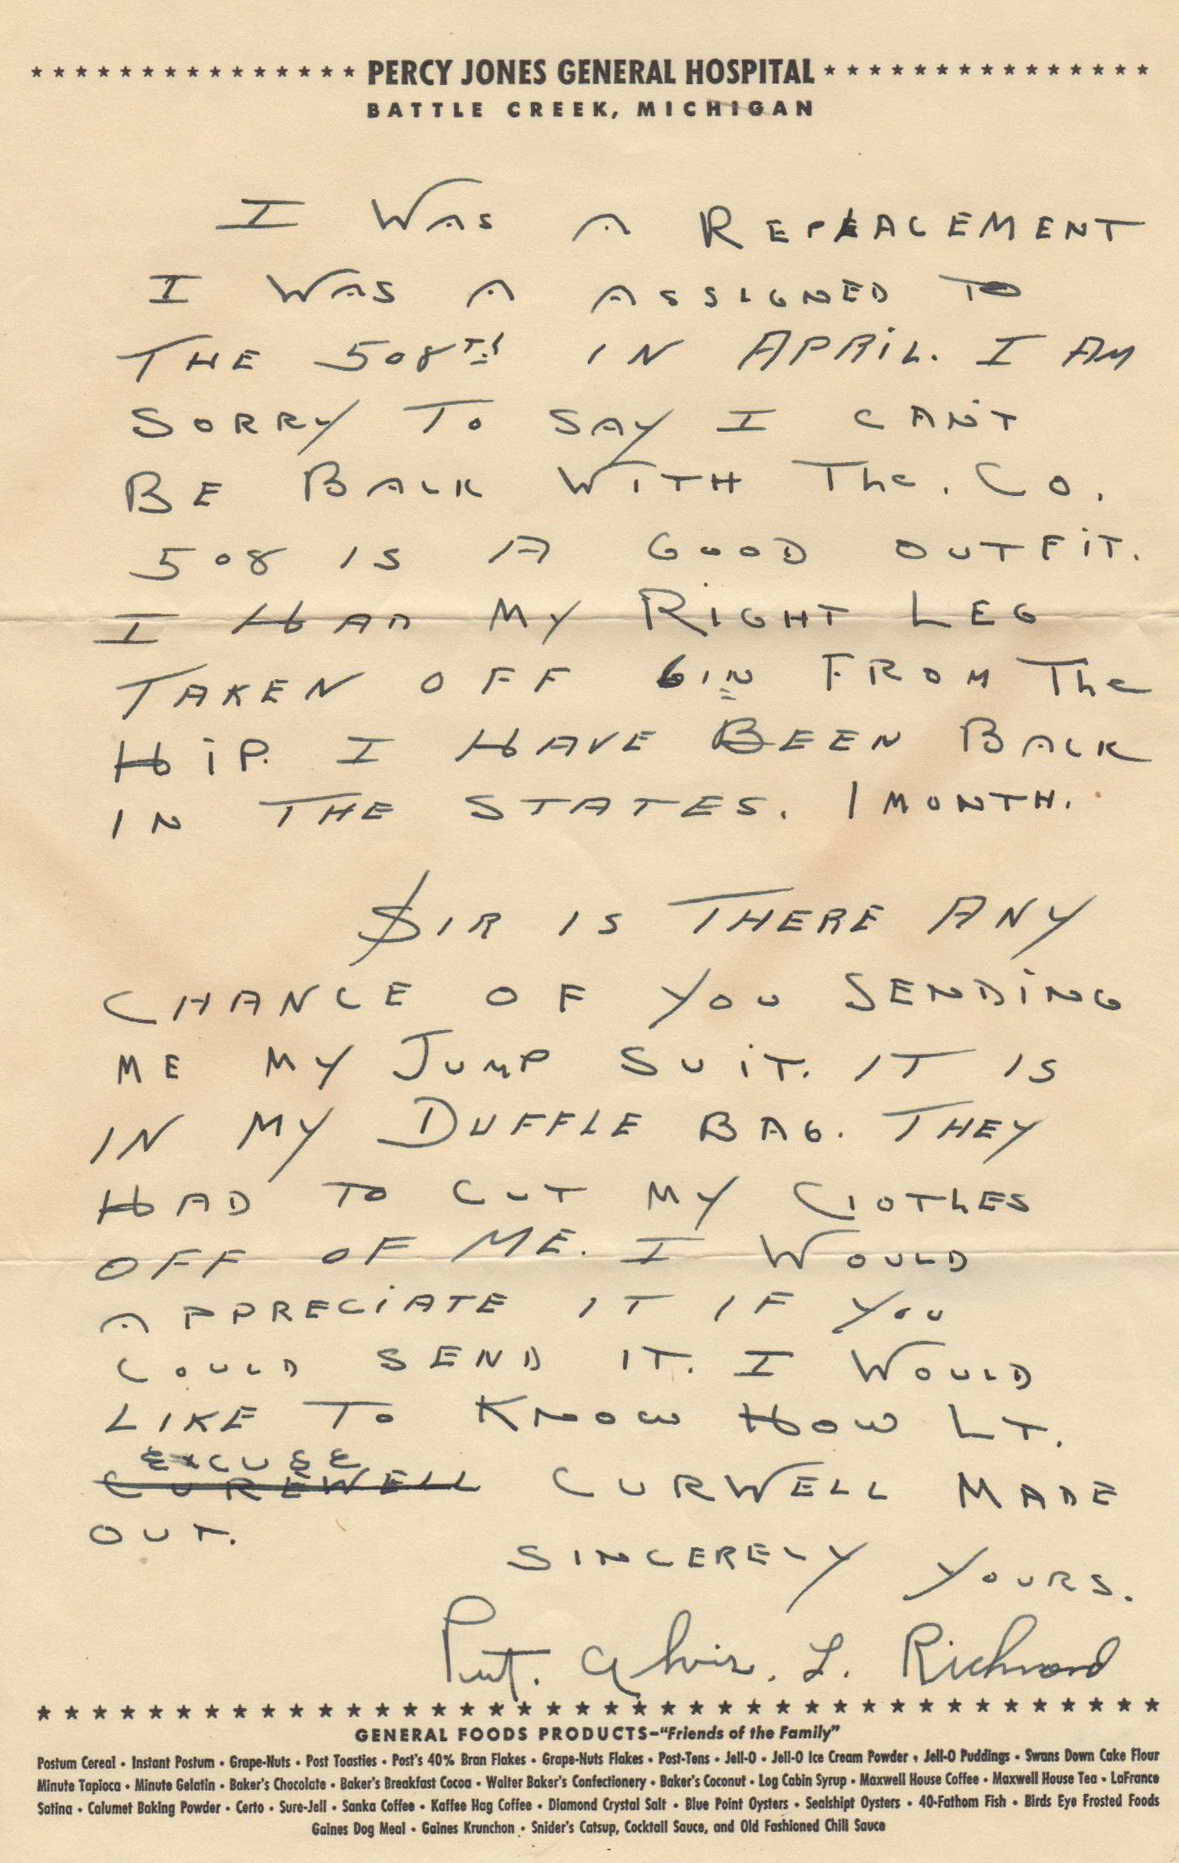 PERCY JONES GENERAL HOSPITAL
BATTLE CREEK, MICHIGAN
I WAS A REPLACEMENT
I WAS A ASSIGNED TO
THE 508TH IN APRIL. I AM
SORRY TO SAY I CAN'T
BE BACK WITH The. Co.
508 IS A GOOD OUTFIT.
I HAD MY RIGHT LEG
TAKEN OFF 6IN FROM The
HIP. I HAVE BEEN BACK
IN THE STATES. 1 MONTH.
SIR IS THERE ANY
CHANCE OF YOU SENDING
ME MY JUMP SUIT. IT IS
IN MY DUFFLE BAG. THEY
HAD TO CUT MY CLOTHES
OFF OF ME. I WOULD
APPRECIATE IT IF YOU
COULD SEND IT. I WOULD
LIKE TO KNOW HOW LT.
EXCUSE
CUREWELL CURWELL MADE
OUT.
SINCERELY YOURS.
Pvt. Alvin. L. Richard
GENERAL FOODS PRODUCTS—"Friends of the Family"
Postum Cereal • Instant Postum • Grape-Nuts • Post Toasties • Post's 40% Bran Flakes • Grape-Nuts Flakes • Post-Tens • Jell-O • Jell-O Ice Cream Powder • Jell-O Puddings • Swans Down Cake Flour
Minute Tapioca • Minute Gelatin • Baker's Chocolate • Baker's Breakfast Cocoa • Walter Baker's Confectionery • Baker's Coconut • Log Cabin Syrup • Maxwell House Coffee • Maxwell House Tea • LaFrance
Satina • Calumet Baking Powder • Certo • Sure-Jell • Sanka Coffee • Kaffee Hag Coffee • Diamond Crystal Salt • Blue Point Oysters • Sealshipt Oysters • 40-Fathom Fish • Birds Eye Frosted Foods
Gaines Dog Meal • Gaines Krunchon • Snider's Catsup, Cocktail Sauce, and Old Fashioned Chili Sauce